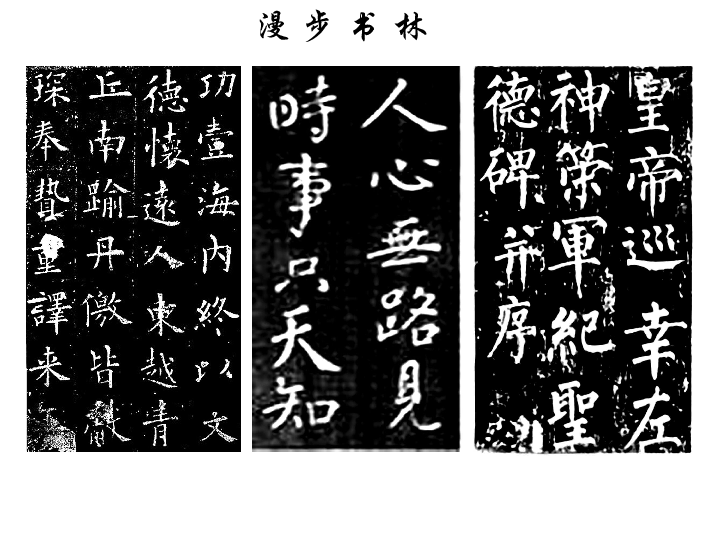 漫步书林
功壹海内終以文
德懷遠人東越青
丘南踰丹徼皆獻
琛奉贄重譯来
人心無路見
時事只天知
皇帝巡幸左
神策軍紀聖
德碑并序